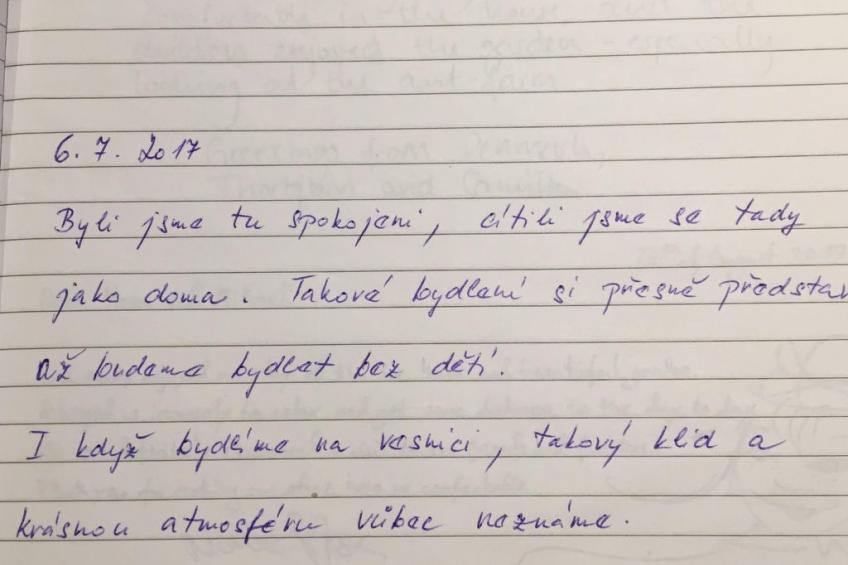 6. 7. 2017
Byli jsme tu spokojeni, cítili jsme se tady
jako doma. Takové bydlení si přesně představ
až budeme bydlet bez dětí.
I když bydlíme na vesnici, takový klid a
krásnou atmosféru vůbec neznáme.